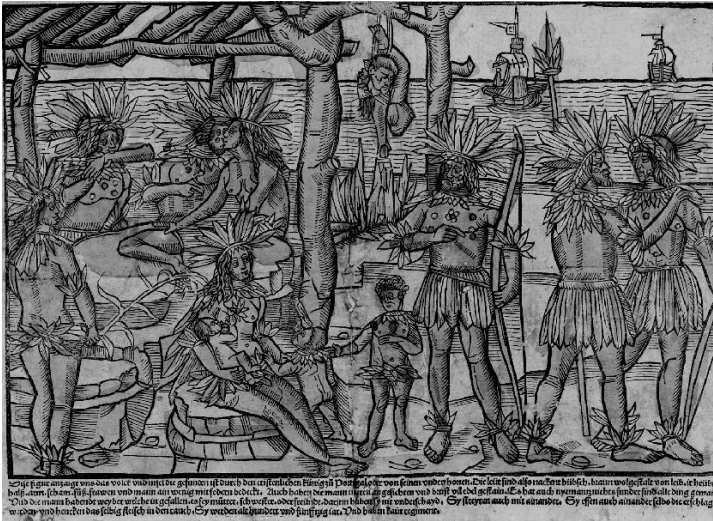 Dise figur anzaigt uns das volck und insel die gefunden ist durch den cristenlichen künig zü Portigal oder von seinen underthonen. Die leüt sind also nackent hübsch, braun wolgestalt von leib, ir heübter
halß, arm, scham, füß, frawen und mann ain wenig mit federn bedeckt. Auch haben die mann in iren angesichten und brust vil edel gestain. Es hat auch nyemantz nichts sunder sind alle ding gemain
Und die mann habendt weyber welche in gefallen, es sey mütter, schwester, oder freündt, darjnn haben sy kain underschayd. Sy streyten auch mit ainander. Sy essen auch ainander selbs die erschlagen
werden, und hencken das selbig fleisch in den rauch. Sy werden alt hundert und füntzig iar. Und haben kain regiment.